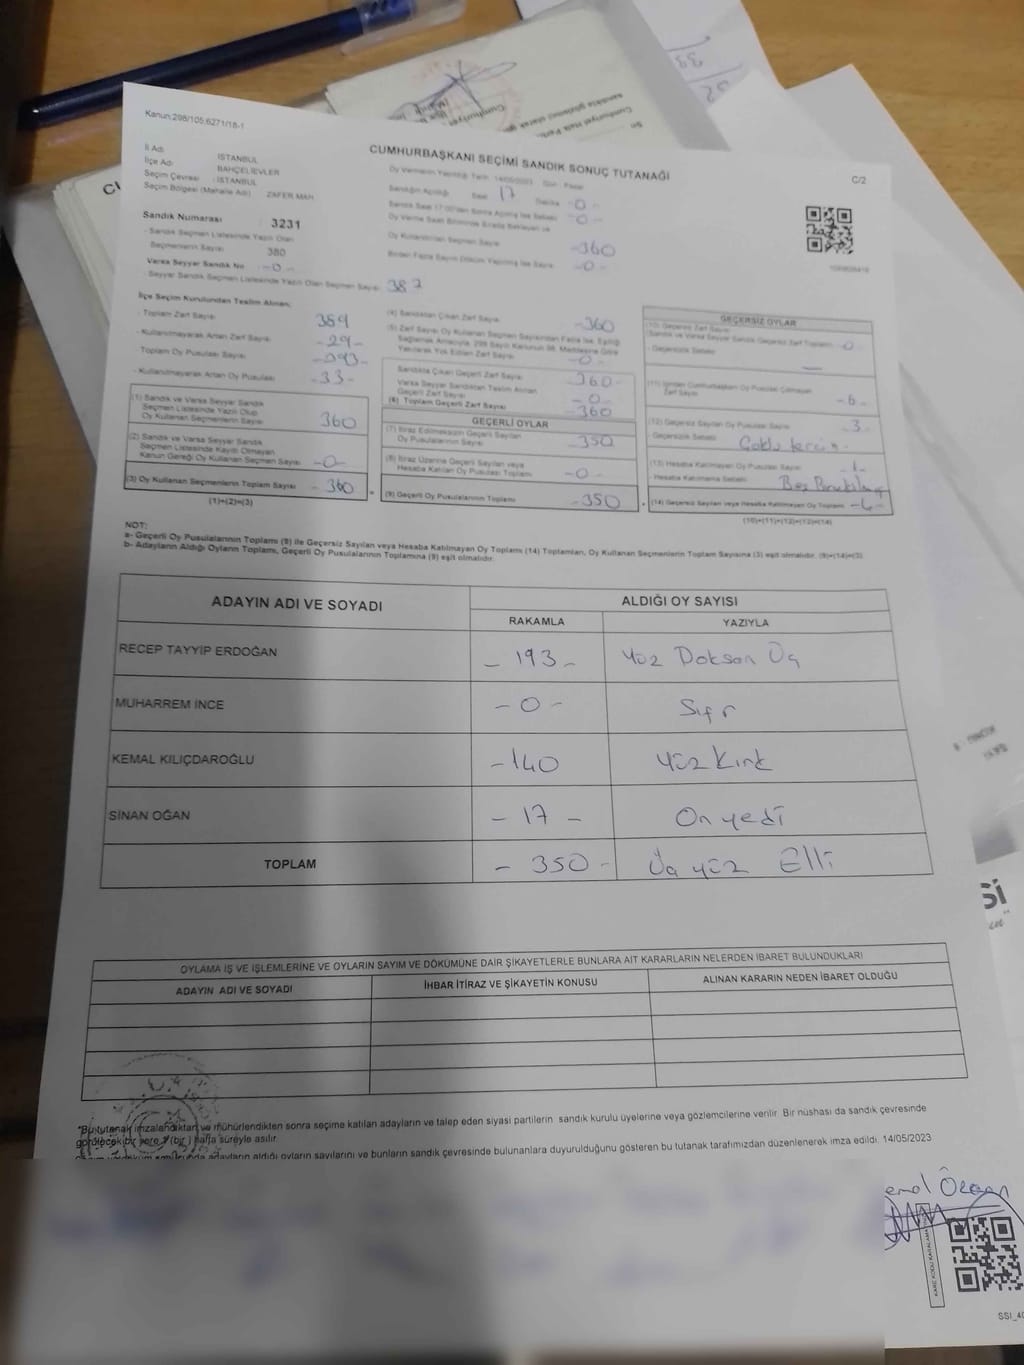 Kanun:298/105,6271/18-1
CUMHURBAŞKANI SEÇİMİ SANDIK SONUÇ TUTANAĞI
C/2
İl Adı : İSTANBUL
İlçe Adı : BAHÇELİEVLER
Seçim Çevresi : İSTANBUL
Seçim Bölgesi (Mahalle Adı) : ZAFER MAH
Sandık Numarası : 3231
- Sandık Seçmen Listesinde Yazılı Olan
Seçmenlerin Sayısı : 380
Varsa Seyyar Sandık No : -0-
- Seyyar Sandık Seçmen Listesinde Yazılı Olan Seçmen Sayısı
Oy Vermenin Yapıldığı Tarih: 14/05/2023 Gün: Pazar
Sandığın Açılışı Saat 17 Dakika -0-
-0-
Oy Kullanılan Seçmen Sayısı -360
Birden Fazla Sayım Döküm Yapılmış İse Sayısı -0-
İlçe Seçim Kurulundan Teslim Alınan;
- Toplam Zarf Sayısı
- Kullanılmayarak Artan Zarf Sayısı -29-
- Toplam Oy Pusulası Sayısı
- Kullanılmayarak Artan Oy Pusulası -33-
(1) Sandık ve Varsa Seyyar Sandık
Seçmen Listesinde Yazılı Olup
Oy Kullanan Seçmenlerin Sayısı 360
(2) Sandık ve Varsa Seyyar Sandık
Seçmen Listesinde Kayıtlı Olmayan
Kanun Gereği Oy Kullanan Seçmen Sayısı -0-
(3) Oy Kullanan Seçmenlerin Toplam Sayısı - 360
(1)+(2)=(3)
(4) Sandıktan Çıkan Zarf Sayısı -360
(5) Zarf Sayısı Oy Kullanan Seçmen Sayısından Fazla İse, Eşitliği
Sağlamak Amacıyla, 298 Sayılı Kanunun 98. Maddesine Göre
Yakılarak Yok Edilen Zarf Sayısı -0-
Sandıkta Çıkan Geçerli Zarf Sayısı 360-
Varsa Seyyar Sandıktan Teslim Alınan
Geçerli Zarf Sayısı -0-
(6) Toplam Geçerli Zarf Sayısı -360
GEÇERLİ OYLAR
(7) İtiraz Edilmeksizin Geçerli Sayılan
Oy Pusulalarının Sayısı -350
(8) İtiraz Üzerine Geçerli Sayılan veya
Hesaba Katılan Oy Pusulası Toplamı -0-
(9) Geçerli Oy Pusulalarının Toplamı -350
GEÇERSİZ OYLAR
(10) Geçersiz Zarf Sayısı
(Sandık ve Varsa Seyyar Sandık Geçersiz Zarf Toplamı) -0-
- Geçersizlik Sebebi
(11) İçinden Cumhurbaşkanı Oy Pusulası Çıkmayan
Zarf Sayısı -6-
(12) Geçersiz Sayılan Oy Pusulası Sayısı -3-
- Geçersizlik Sebebi
(13) Hesaba Katılmayan Oy Pusulası Sayısı -1-
- Hesaba Katılmama Sebebi
(14) Geçersiz Sayılan veya Hesaba Katılmayan Oy Toplamı
(10)+(11)+(12)+(13)=(14)
NOT:
a- Geçerli Oy Pusulalarının Toplamı (9) ile Geçersiz Sayılan veya Hesaba Katılmayan Oy Toplamı (14) Toplamları, Oy Kullanan Seçmenlerin Toplam Sayısına (3) eşit olmalıdır. (9)+(14)=(3)
b- Adayların Aldığı Oyların Toplamı, Geçerli Oy Pusulalarının Toplamına (9) eşit olmalıdır.
ADAYIN ADI VE SOYADI
ALDIĞI OY SAYISI
RAKAMLA YAZIYLA
RECEP TAYYİP ERDOĞAN - 193 - Yüz Doksan Üç
MUHARREM İNCE - 0 - Sıfır
KEMAL KILIÇDAROĞLU -140 Yüz Kırk
SİNAN OĞAN - 17 - On yedi
TOPLAM - 350 - Üç yüz Elli
OYLAMA İŞ VE İŞLEMLERİNE VE OYLARIN SAYIM VE DÖKÜMÜNE DAİR ŞİKAYETLERLE BUNLARA AİT KARARLARIN NELERDEN İBARET BULUNDUKLARI
ADAYIN ADI VE SOYADI İHBAR İTİRAZ VE ŞİKAYETİN KONUSU ALINAN KARARIN NEDEN İBARET OLDUĞU
*Bu tutanak imzalandıktan ve mühürlendikten sonra seçime katılan adayların ve talep eden siyasi partilerin sandık kurulu üyelerine veya gözlemcilerine verilir. Bir nüshası da sandık çevresinde
görülecek bir yere 1 (bir) hafta süreyle asılır.
adayların aldığı oyların sayılarını ve bunların sandık çevresinde bulunanlara duyurulduğunu gösteren bu tutanak tarafımızdan düzenlenerek imza edildi. 14/05/2023